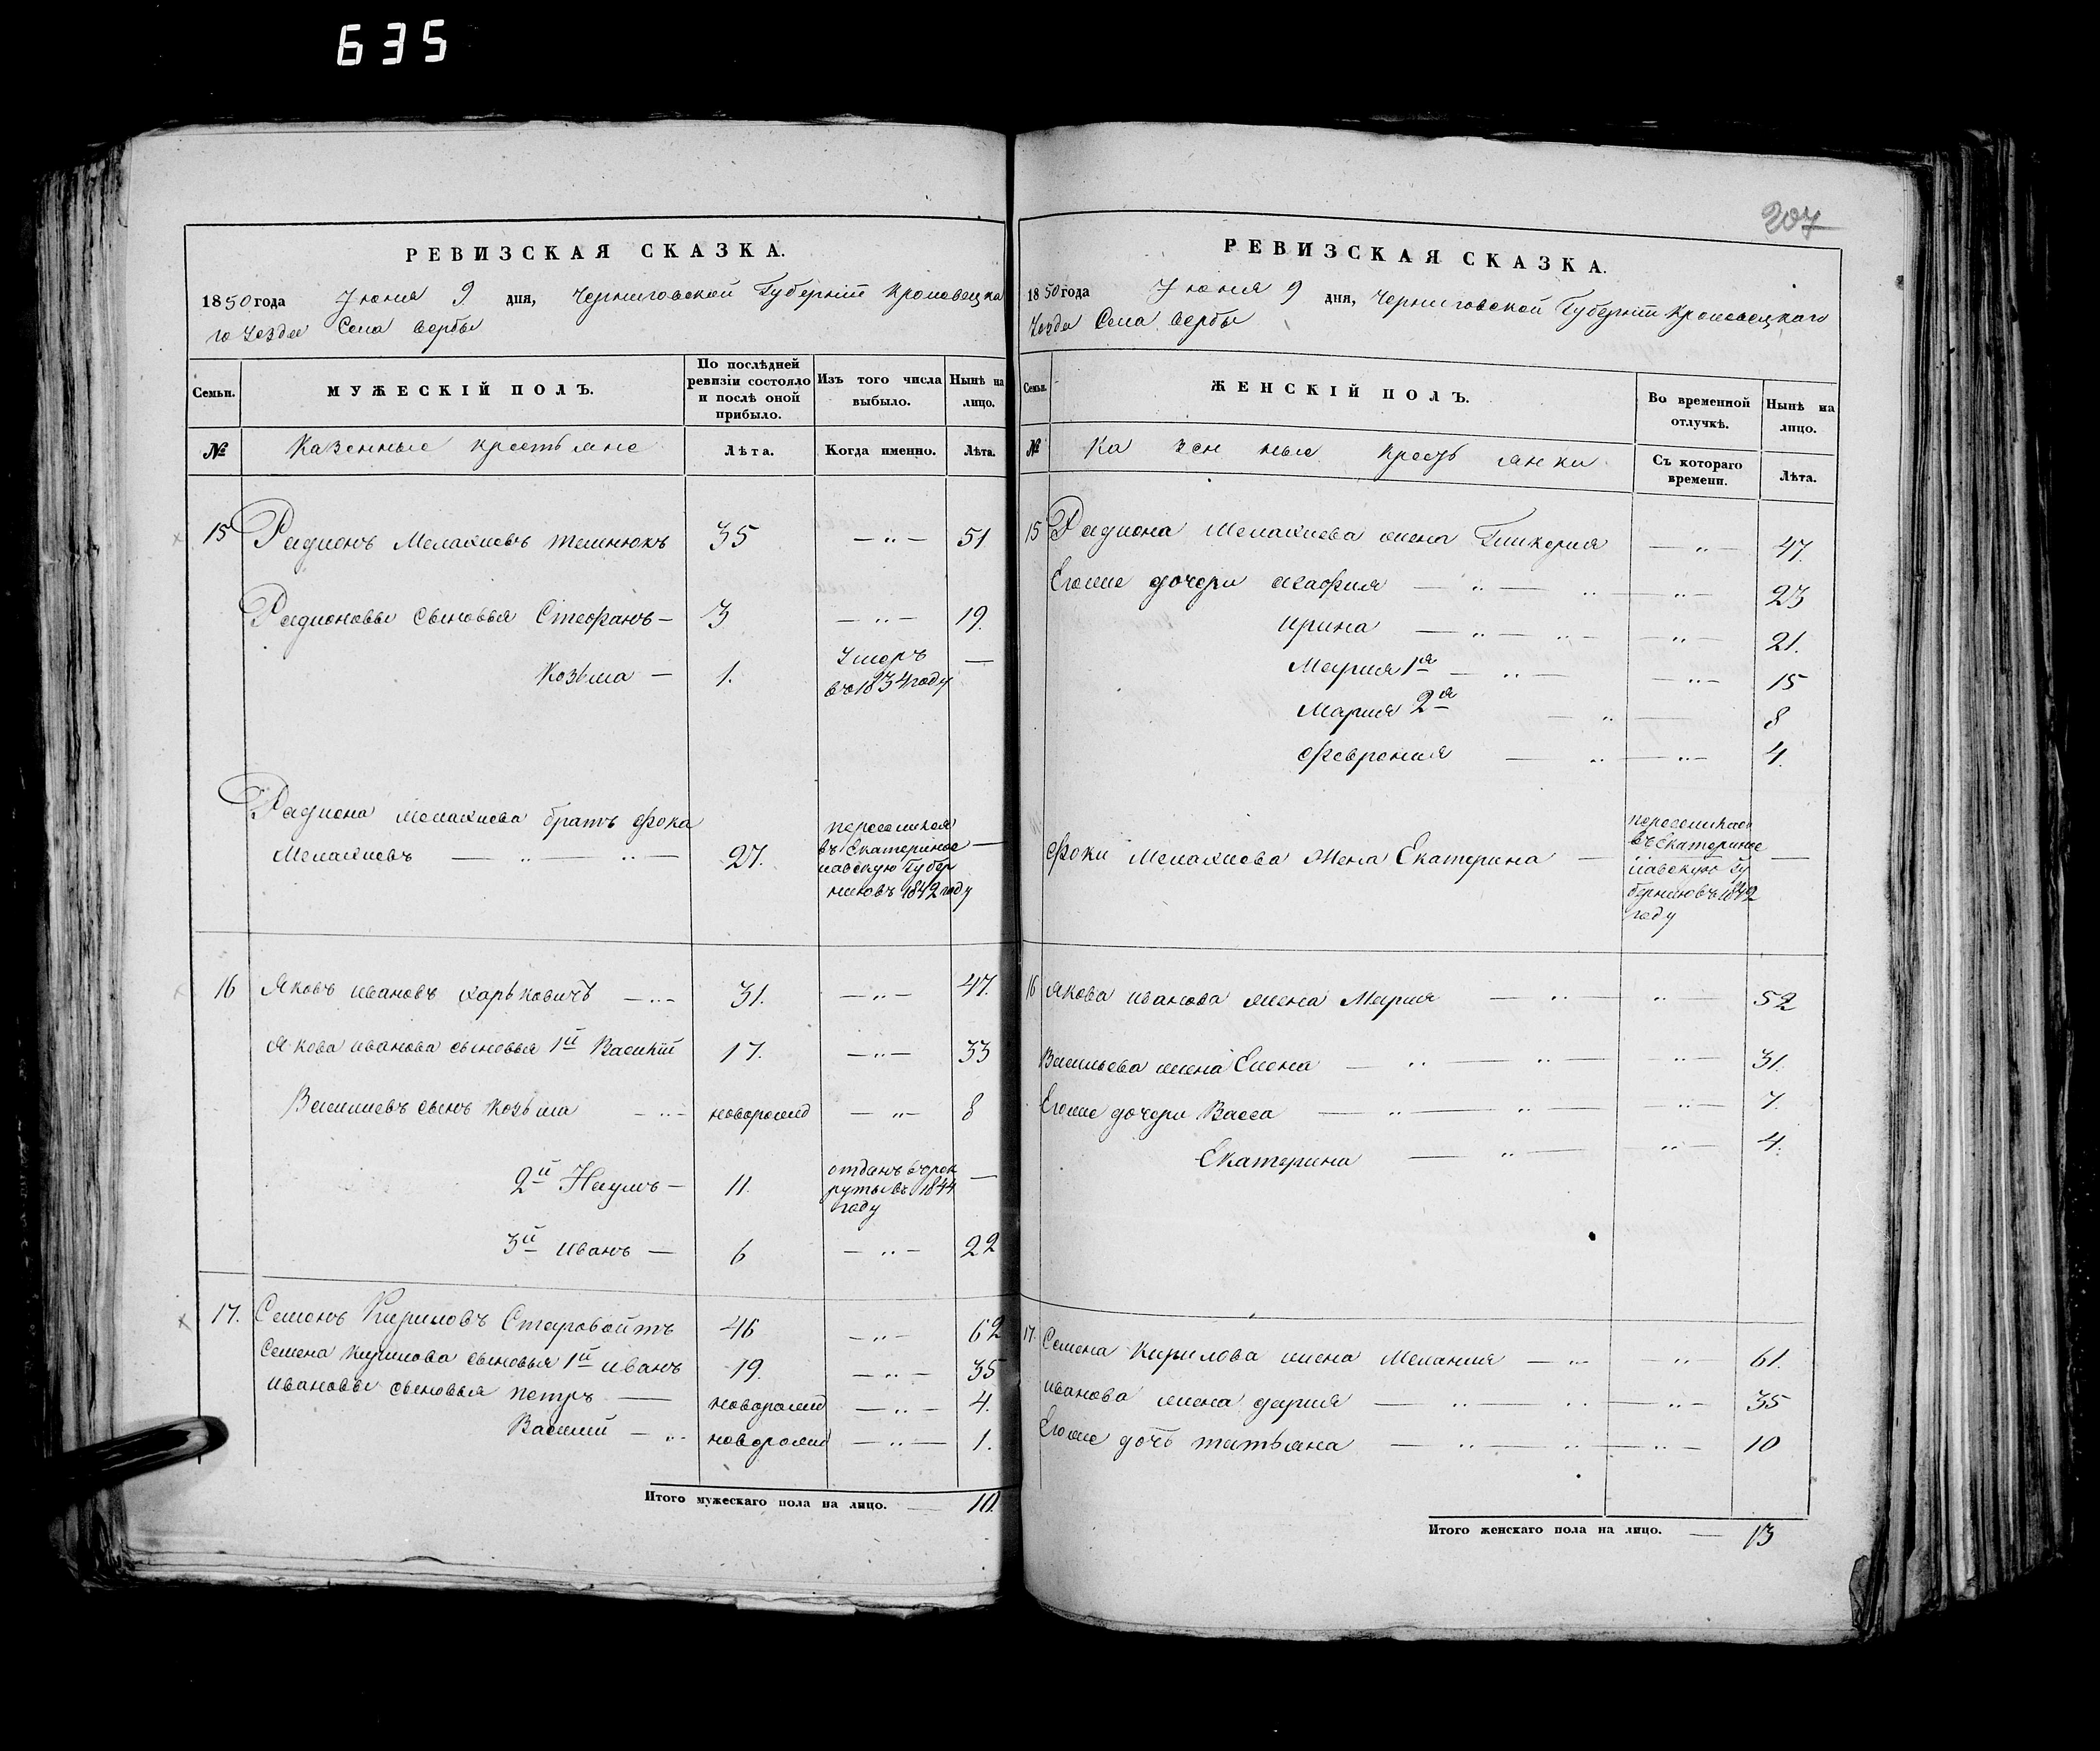 635
207
РЕВИЗСКАЯ СКАЗКА.
1850 года Июня 9 дня, Черниговской Губерніи Кролевецка
го Уезда Села Вербы
Семьи. МУЖЕСКІЙ ПОЛЪ. По послѣдней ревизіи состояло и послѣ оной прибыло. Изъ того числа выбыло. Нынѣ на лицо.
№ Казенные крестьяне Лѣта. Когда именно. Лѣта.
15 Радионъ Мелахиевъ Темнюкъ 35 — „ — 51
Радионовы сыновья Стефанъ — 3 — „ — 19.
Козьма — 1. Умеръ въ 1834 году —
Радиона Мелахиева братъ Фока
Мелахиевъ — „ — „ — 27. переселился въ Екатеринос лавскую Губер нию въ 1842 году —
16 Яковъ Ивановъ Харьковичъ — „ — 31. — „ — 47.
Якова Иванова сыновья 1й Василій 17. — „ — 33
Василиевъ сынъ Козьма — „ — новорожд — „ — 8
2й Наумъ — 11. отданъ в рек руты въ 1844 году —
3й Иванъ — 6 — „ — 22
17. Семенъ Кириловъ Старовойтъ 46 — „ — 62
Семена Кирилова сыновья 1й Иванъ 19. — „ — 35
Ивановы сыновья Петръ — новорожд — „ — 4.
Василий — „ новорожд — „ — 1.
Итого мужескаго пола на лицо. — 10.
РЕВИЗСКАЯ СКАЗКА.
1850 года Июня 9 дня, Черниговской Губерніи Кролевецкаго
Уезда Села Вербы
Семьи. ЖЕНСКІЙ ПОЛЪ. Во временной отлучкѣ. Нынѣ на лицо.
№ Казенные Крестьянки Съ котораго времени. Лѣта.
15 Радиона Мелахиева жена Гликерия — „ — 47.
Егоже дочери Агафия — „ — „ — „ — 23
Ирина — „ — „ — „ — 21.
Мария 1я — „ — — „ — 15
Мария 2я — „ — 8
Феврония — „ — „ — 4.
Фоки Мелахиева Жена Екатерина — переселилась въ Екатеринос лавскую Гу бернию въ 1842 году —
16 Якова Иванова жена Мария — „ — „ — 52
Васильева жена Елена — „ — „ — „ — 31.
Егоже дочери Васса — „ — „ — „ — 7.
Екатерина — „ — „ — 4.
17. Семена Кирилова жена Мелания — „ — — „ 61.
Иванова жена Дария — „ — „ — „ — 35
Егоже дочь Татьяна — „ — „ — „ — 10
Итого женскаго пола на лицо. — 13